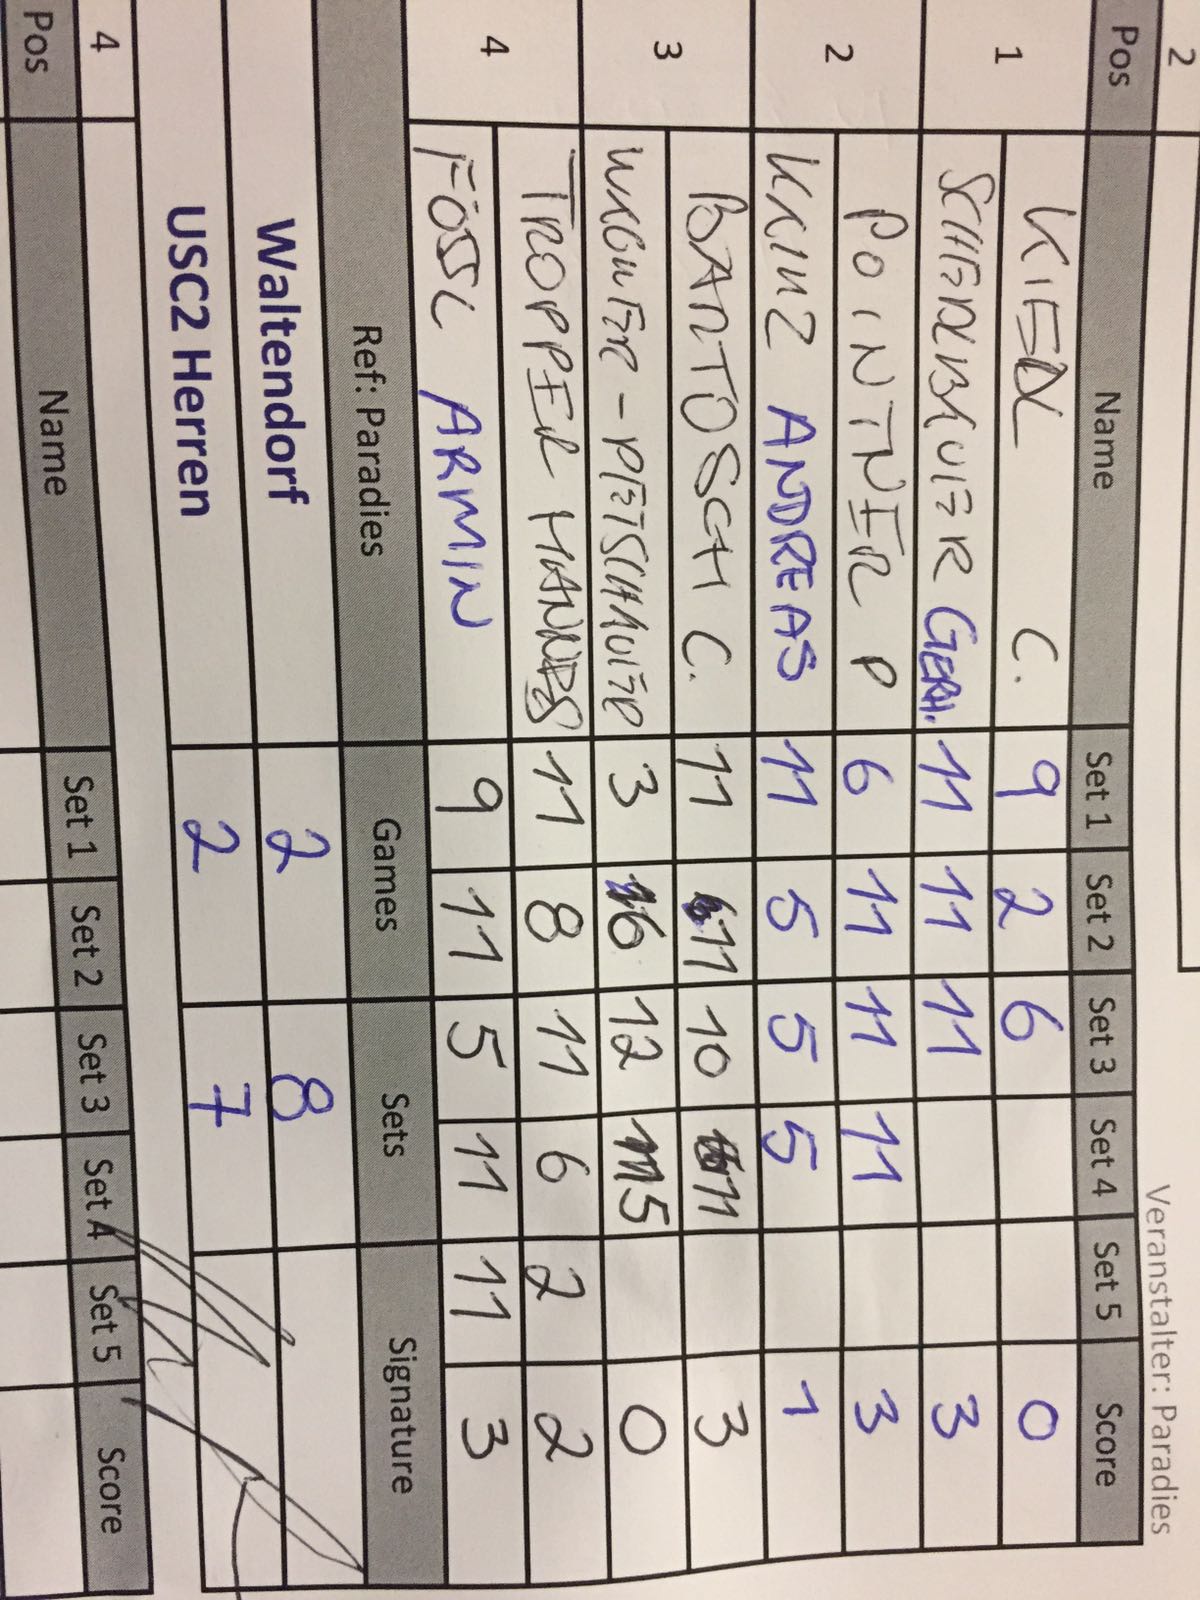 2
Veranstalter: Paradies
Pos Name Set 1 Set 2 Set 3 Set 4 Set 5 Score
1 KIEDL C. 9 2 6 0
GERH. 11 11 11 3
2 POINTNER P 6 11 11 11 3
KRINZ ANDREAS 11 5 5 5 1
3 BARTOSCH C. 11 11 10 11 3
3 6 12 5 0
4 TROPPER HANNES 11 8 11 6 2 2
FÖSSL ARMIN 9 11 5 11 11 3
Ref: Paradies Games Sets Signature
Waltendorf 2 8
USC2 Herren 2 7
4
Pos Name Set 1 Set 2 Set 3 Set 4 Set 5 Score